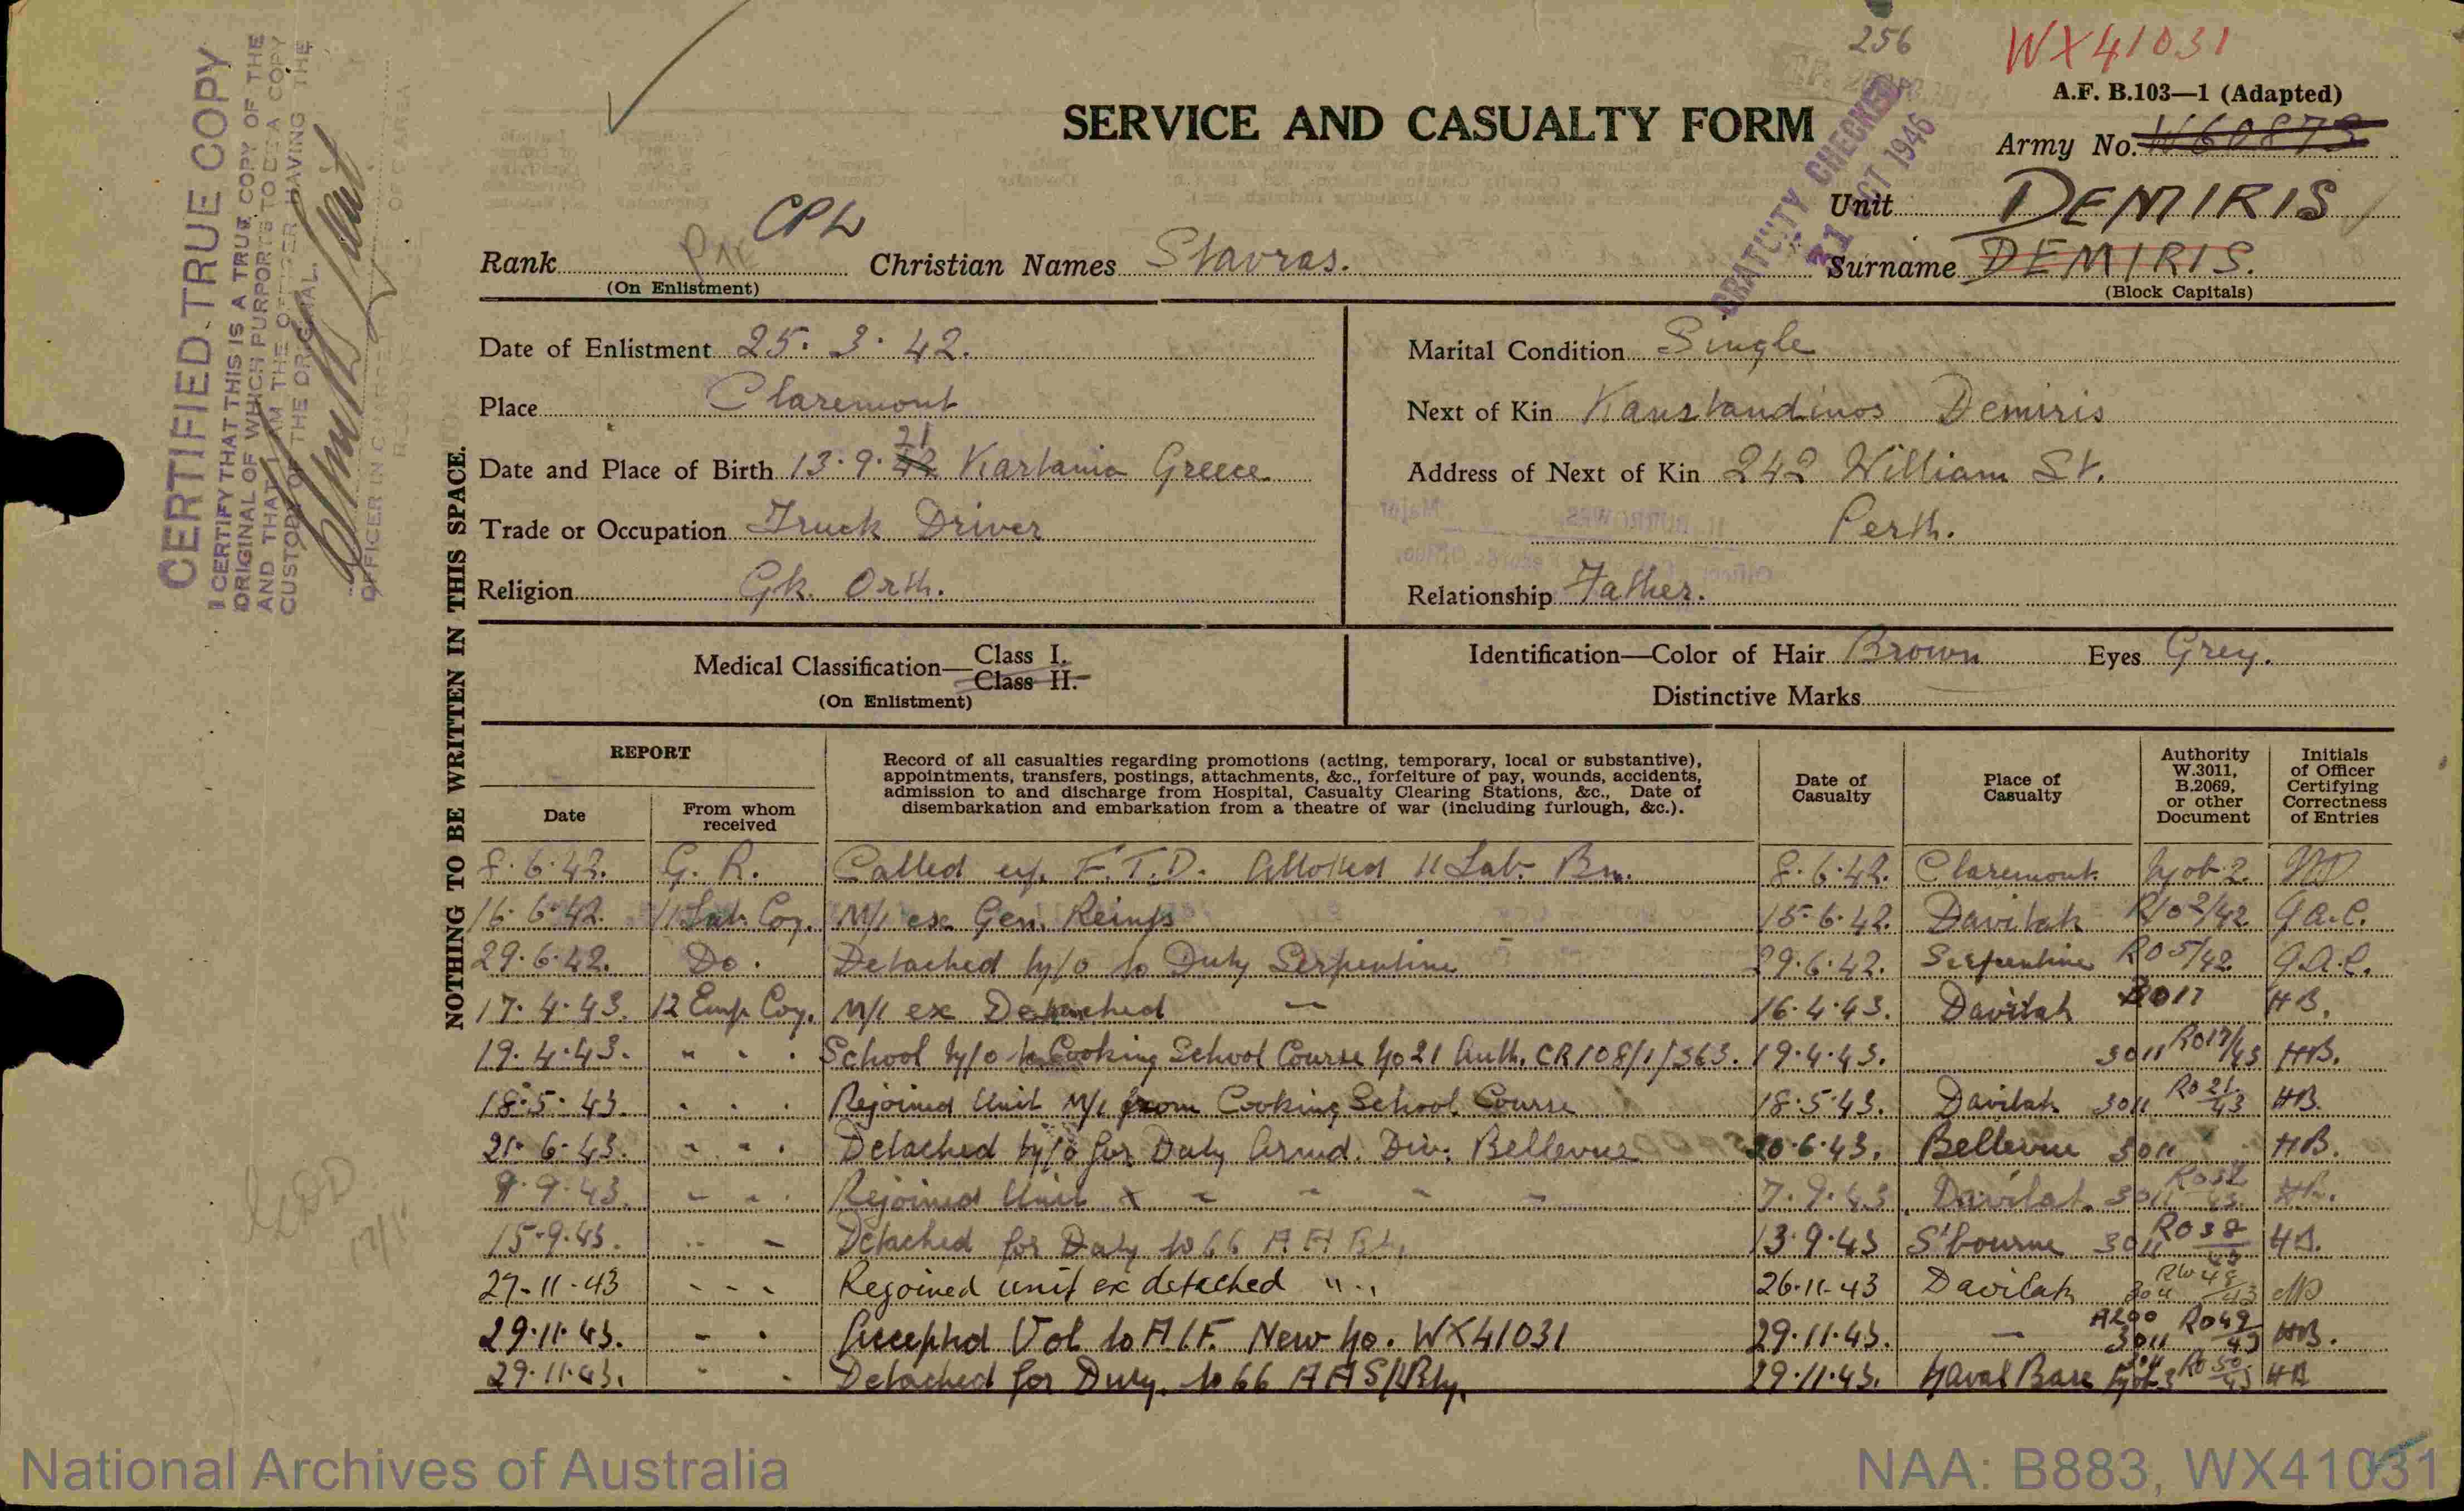 256
WX41031
SERVICE AND CASUALTY FORM
A.F. B.103—1 (Adapted)
Army No. W60873
GRATUITY CHECKED
31 OCT 1946
Unit DEMIRIS
Rank Pte CPL Christian Names Stavras. Surname DEMIRIS.
(On Enlistment) (Block Capitals)
CERTIFIED TRUE COPY
I CERTIFY THAT THIS IS A TRUE COPY OF THE
ORIGINAL OF WHICH PURPORTS TO BE A COPY
AND THAT I AM THE OFFICER HAVING THE
CUSTODY OF THE ORIGINAL.
OFFICER IN CHARGE
NOTHING TO BE WRITTEN IN THIS SPACE.
Date of Enlistment 25. 3. 42.
Place Claremont
Date and Place of Birth 13.9. 42 21 Kartania Greece
Trade or Occupation Truck Driver
Religion Gk. Orth.
Marital Condition Single
Next of Kin Kanstandinos Demiris
Address of Next of Kin 242 William St.
Perth.
Relationship Father.
Medical Classification— Class I.
Class II.
(On Enlistment)
Identification—Color of Hair Brown Eyes Grey.
Distinctive Marks
REPORT
Date
From whom received
Record of all casualties regarding promotions (acting, temporary, local or substantive),
appointments, transfers, postings, attachments, &c., forfeiture of pay, wounds, accidents,
admission to and discharge from Hospital, Casualty Clearing Stations, &c., Date of
disembarkation and embarkation from a theatre of war (including furlough, &c.).
Date of Casualty
Place of Casualty
Authority W.3011, B.2069, or other Document
Initials of Officer Certifying Correctness of Entries
8.6.42. G. R. Called up. F.T.D. Allotted 11 Lab. Bn. 8.6.42. Claremont Mob 2.
16.6.42. 11 Lab. Coy. M/I ex Gen. Reinfs 15.6.42. Davilak R/O 2/42 G.A.C.
29.6.42. Do. Detached M/O to Duty Serpentine 29.6.42. Serpentine RO 5/42 G.A.C.
17.4.43. 12 Emp Coy. M/I ex Detached — 16.4.43. Davilak RO17 HB.
19.4.43. " " . School M/O to Cooking School Course No 21 Auth. CR108/1/363. 19.4.43. 3011 RO17/43 HB.
18.5.43. . . . Rejoined Unit M/I from Cooking School Course 18.5.43. Davilak 3011 RO 21/43 HB.
21.6.43. " " . Detached M/O for Duty Armd. Div. Bellevue 20.6.43. Bellevue 3011 HB.
9.9.43. " " . Rejoined Unit x " " " " 7.9.43 Davilak. 3011 HB.
15.9.43. " " Detached for Duty to 66 AA 13.9.43 S'bourne 3011 RO 38/43 HB.
27-11-43 " " " Rejoined unit ex detached " " 26-11-43 Davilak 3011
29.11.43. " . Accepted Vol to A.I.F. New No. WX41031 29.11.43. — A200 3011 RO49/43 HB.
29.11.43. " . Detached for Duty to 66 AA S/L Bty. 29.11.43. Naval Base 3011 RO 50/43 HB
National Archives of Australia
NAA: B883, WX41031